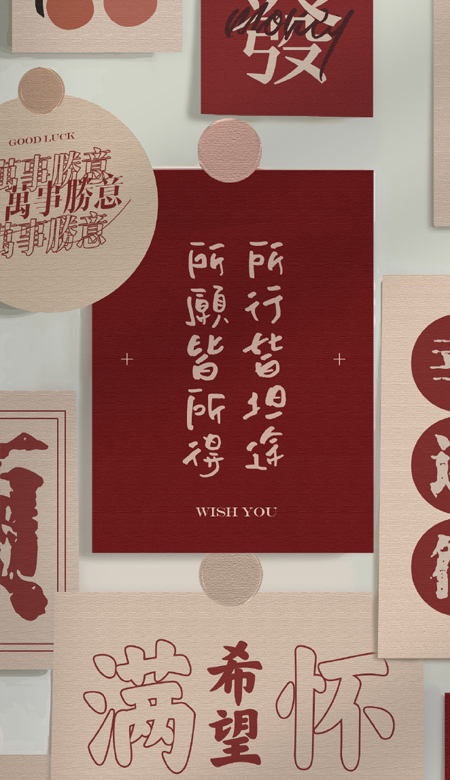 發
money
GOOD LUCK
萬事勝意
萬事勝意
萬事勝意
所行皆坦途
所願皆所得
WISH YOU
满怀
希望